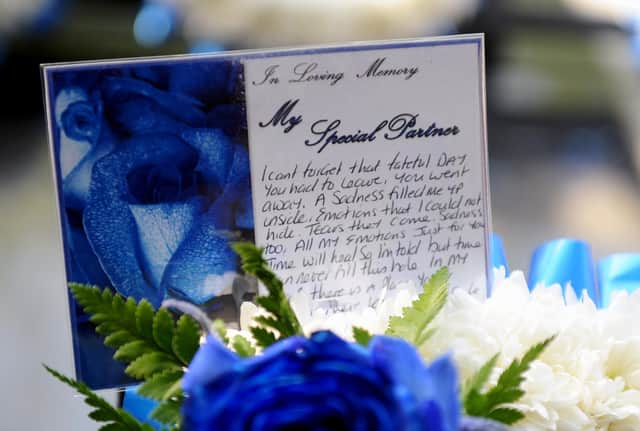 In Loving Memory
My
Special Partner
I cant forget that fateful DAY
You had to Leave, You went
away. A Sadness filled me up
inside, Emotions that I could not
hide. Tears they come Sadness
too, All my Emotions Just for You
Time will heal So Im told but time
never fill this hole. In my
there is a place You